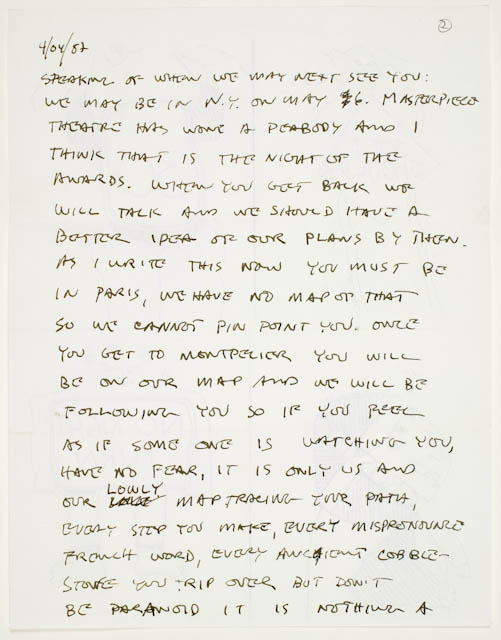 2
4/04/87
SPEAKING OF WHEN WE MAY NEXT SEE YOU:
WE MAY BE IN N.Y. ON MAY 6. MASTERPIECE
THEATRE HAS WONE A PEABODY AND I
THINK THAT IS THE NIGHT OF THE
AWARDS. WHEN YOU GET BACK WE
WILL TALK AND WE SHOULD HAVE A
BETTER IDEA OF OUR PLANS BY THEN.
AS I WRITE THIS NOW YOU MUST BE
IN PARIS, WE HAVE NO MAP OF THAT
SO WE CANNOT PIN POINT YOU. ONCE
YOU GET TO MONTPELIER YOU WILL
BE ON OUR MAP AND WE WILL BE
FOLLOWING YOU SO IF YOU FEEL
AS IF SOME ONE IS WATCHING YOU,
HAVE NO FEAR, IT IS ONLY US AND
OUR LOWLY MAP, TRACING YOUR PATH,
EVERY STEP YOU MAKE, EVERY MISPRONOUNCE
FRENCH WORD, EVERY ANCIENT COBBLE-
STONE YOU TRIP OVER BUT DON'T
BE PARANOID IT IS NOTHING A